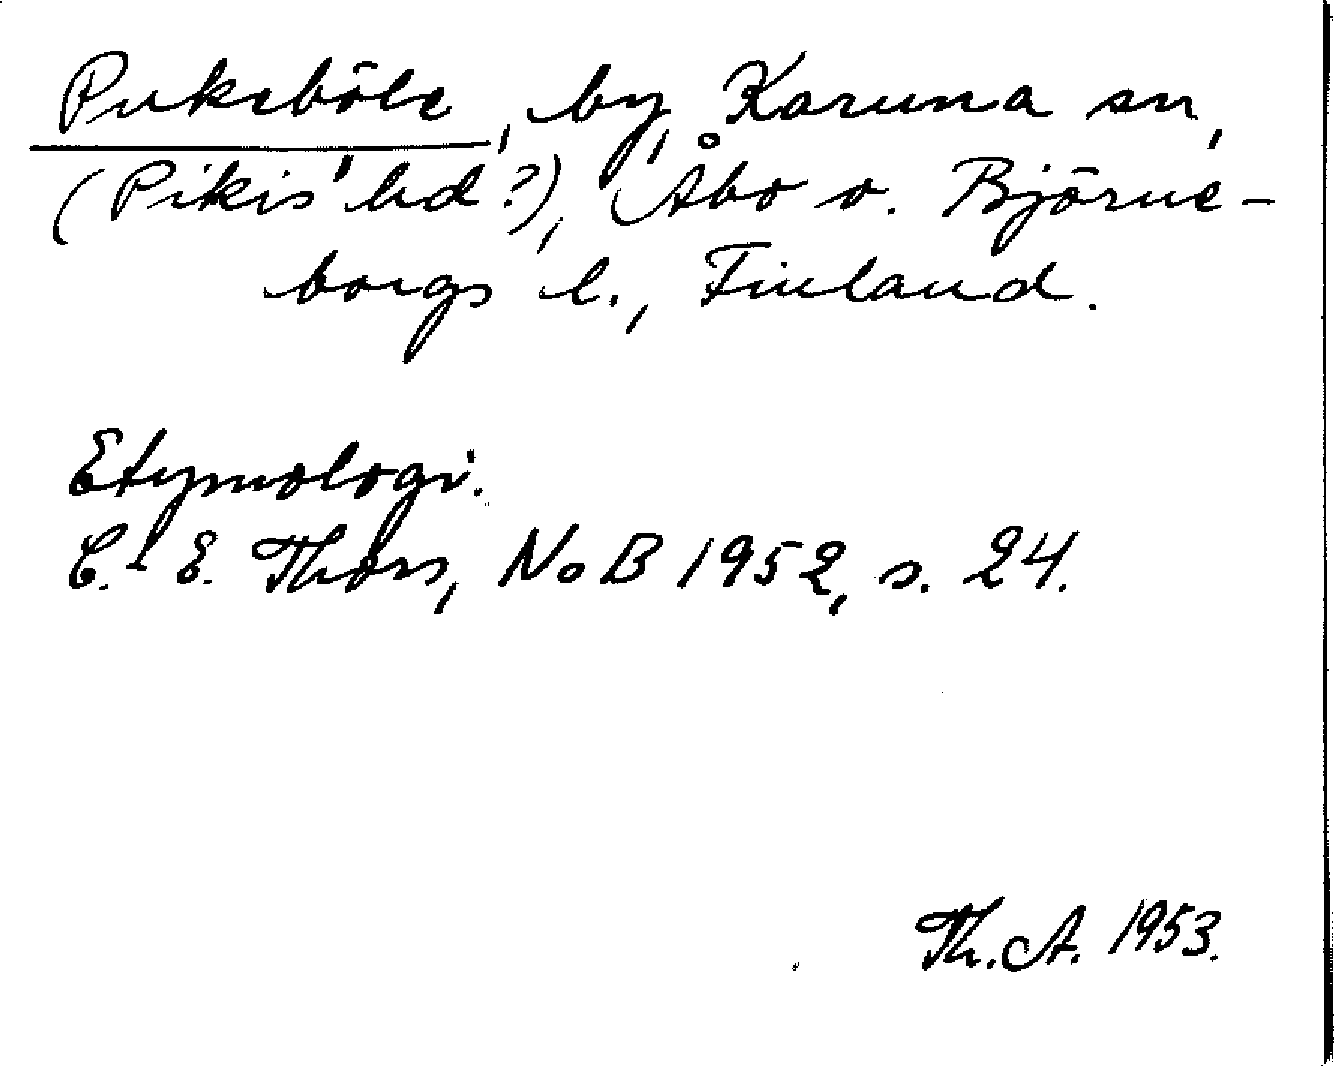 Pukeböle, by, Karuna sn,
(Pikis hd?), Åbo o. Björne-
borgs l., Finland.
Etymologi.
C.-E. Thors, NoB 1952, s. 24.
Th. A. 1953.